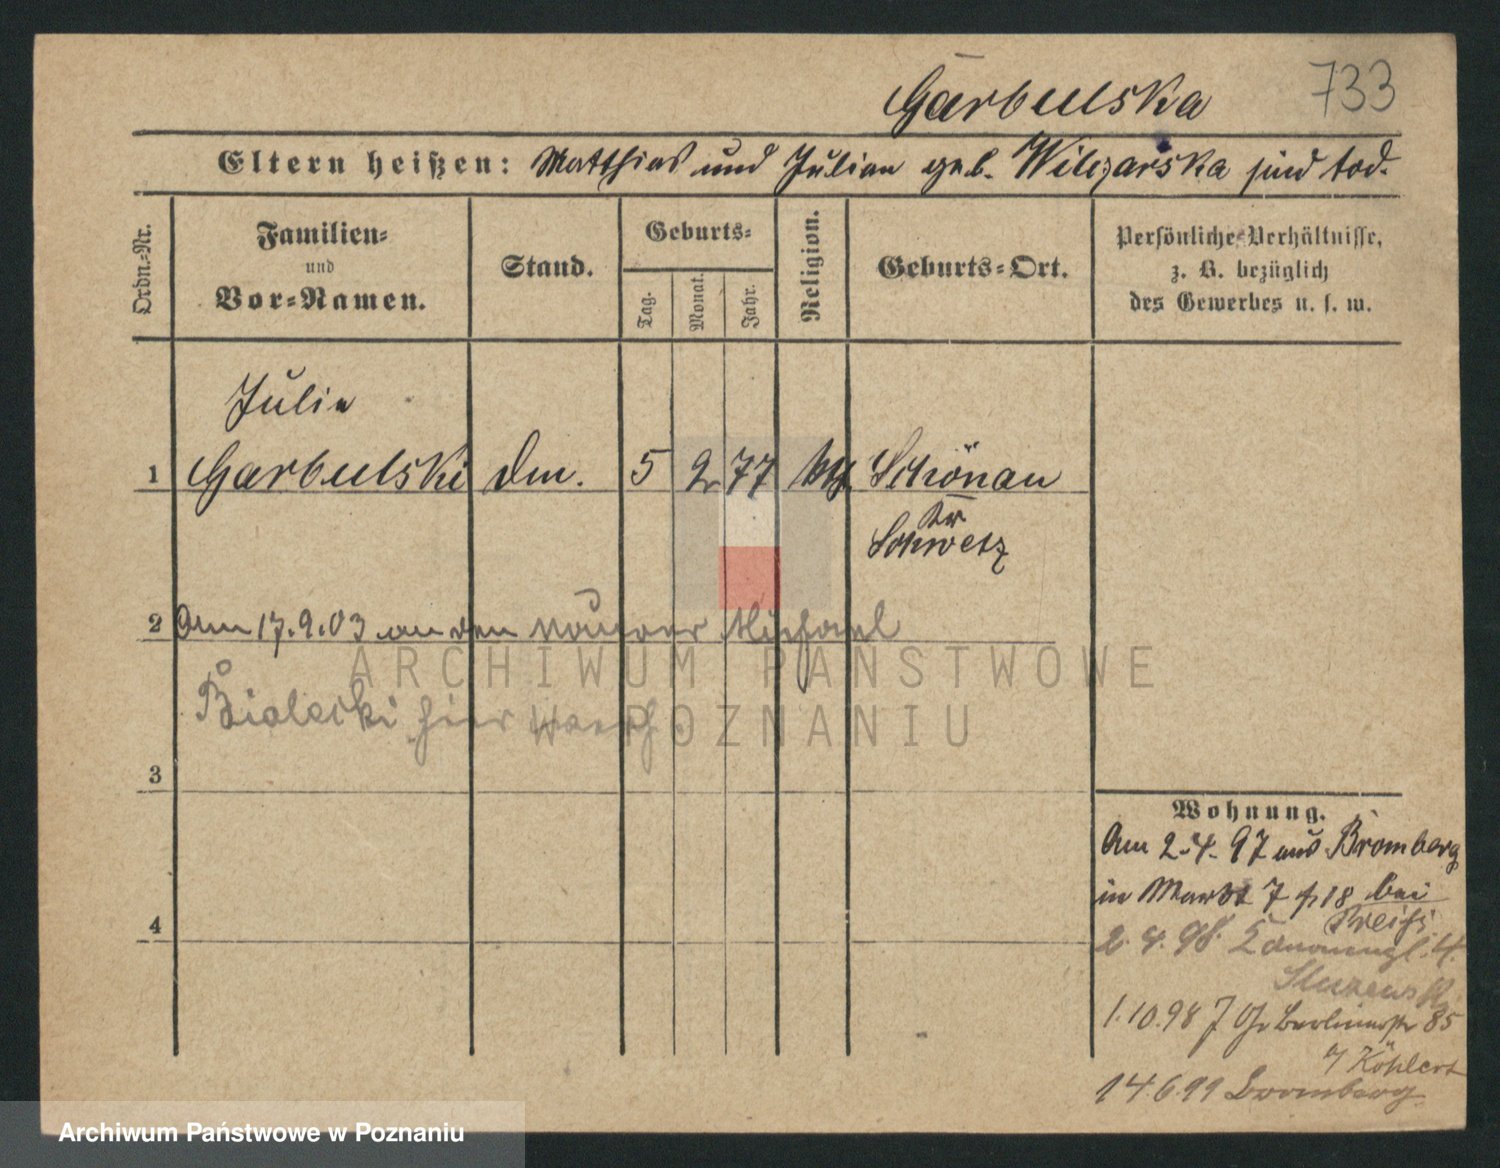 Garbulska
733
Eltern heißen: Matthias und Julian geb. Wilczarska sind tod.
Ordn.-Nr.
Familien-
und
Vor-Namen.
Stand.
Geburts-
Tag.
Monat.
Jahr.
Religion.
Geburts-Ort.
Persönliche Verhältnisse,
z. B. bezüglich
des Gewerbes u. s. w.
Julie
1 Garbulski 5 2 77 Schönau
Kr
Schwetz
2 Am 17.9.03 an den Maurer Michael
Bialecki hier
3
4
Wohnung.
Am 2.4.97 aus Bromberg
in Markt 7 18 bei
2.4.98. 4.
1.10.98 Berlinerstr 85
Köhlert
14.6.99 Bromberg.
ARCHIWUM PAŃSTWOWE
W POZNANIU
Archiwum Państwowe w Poznaniu